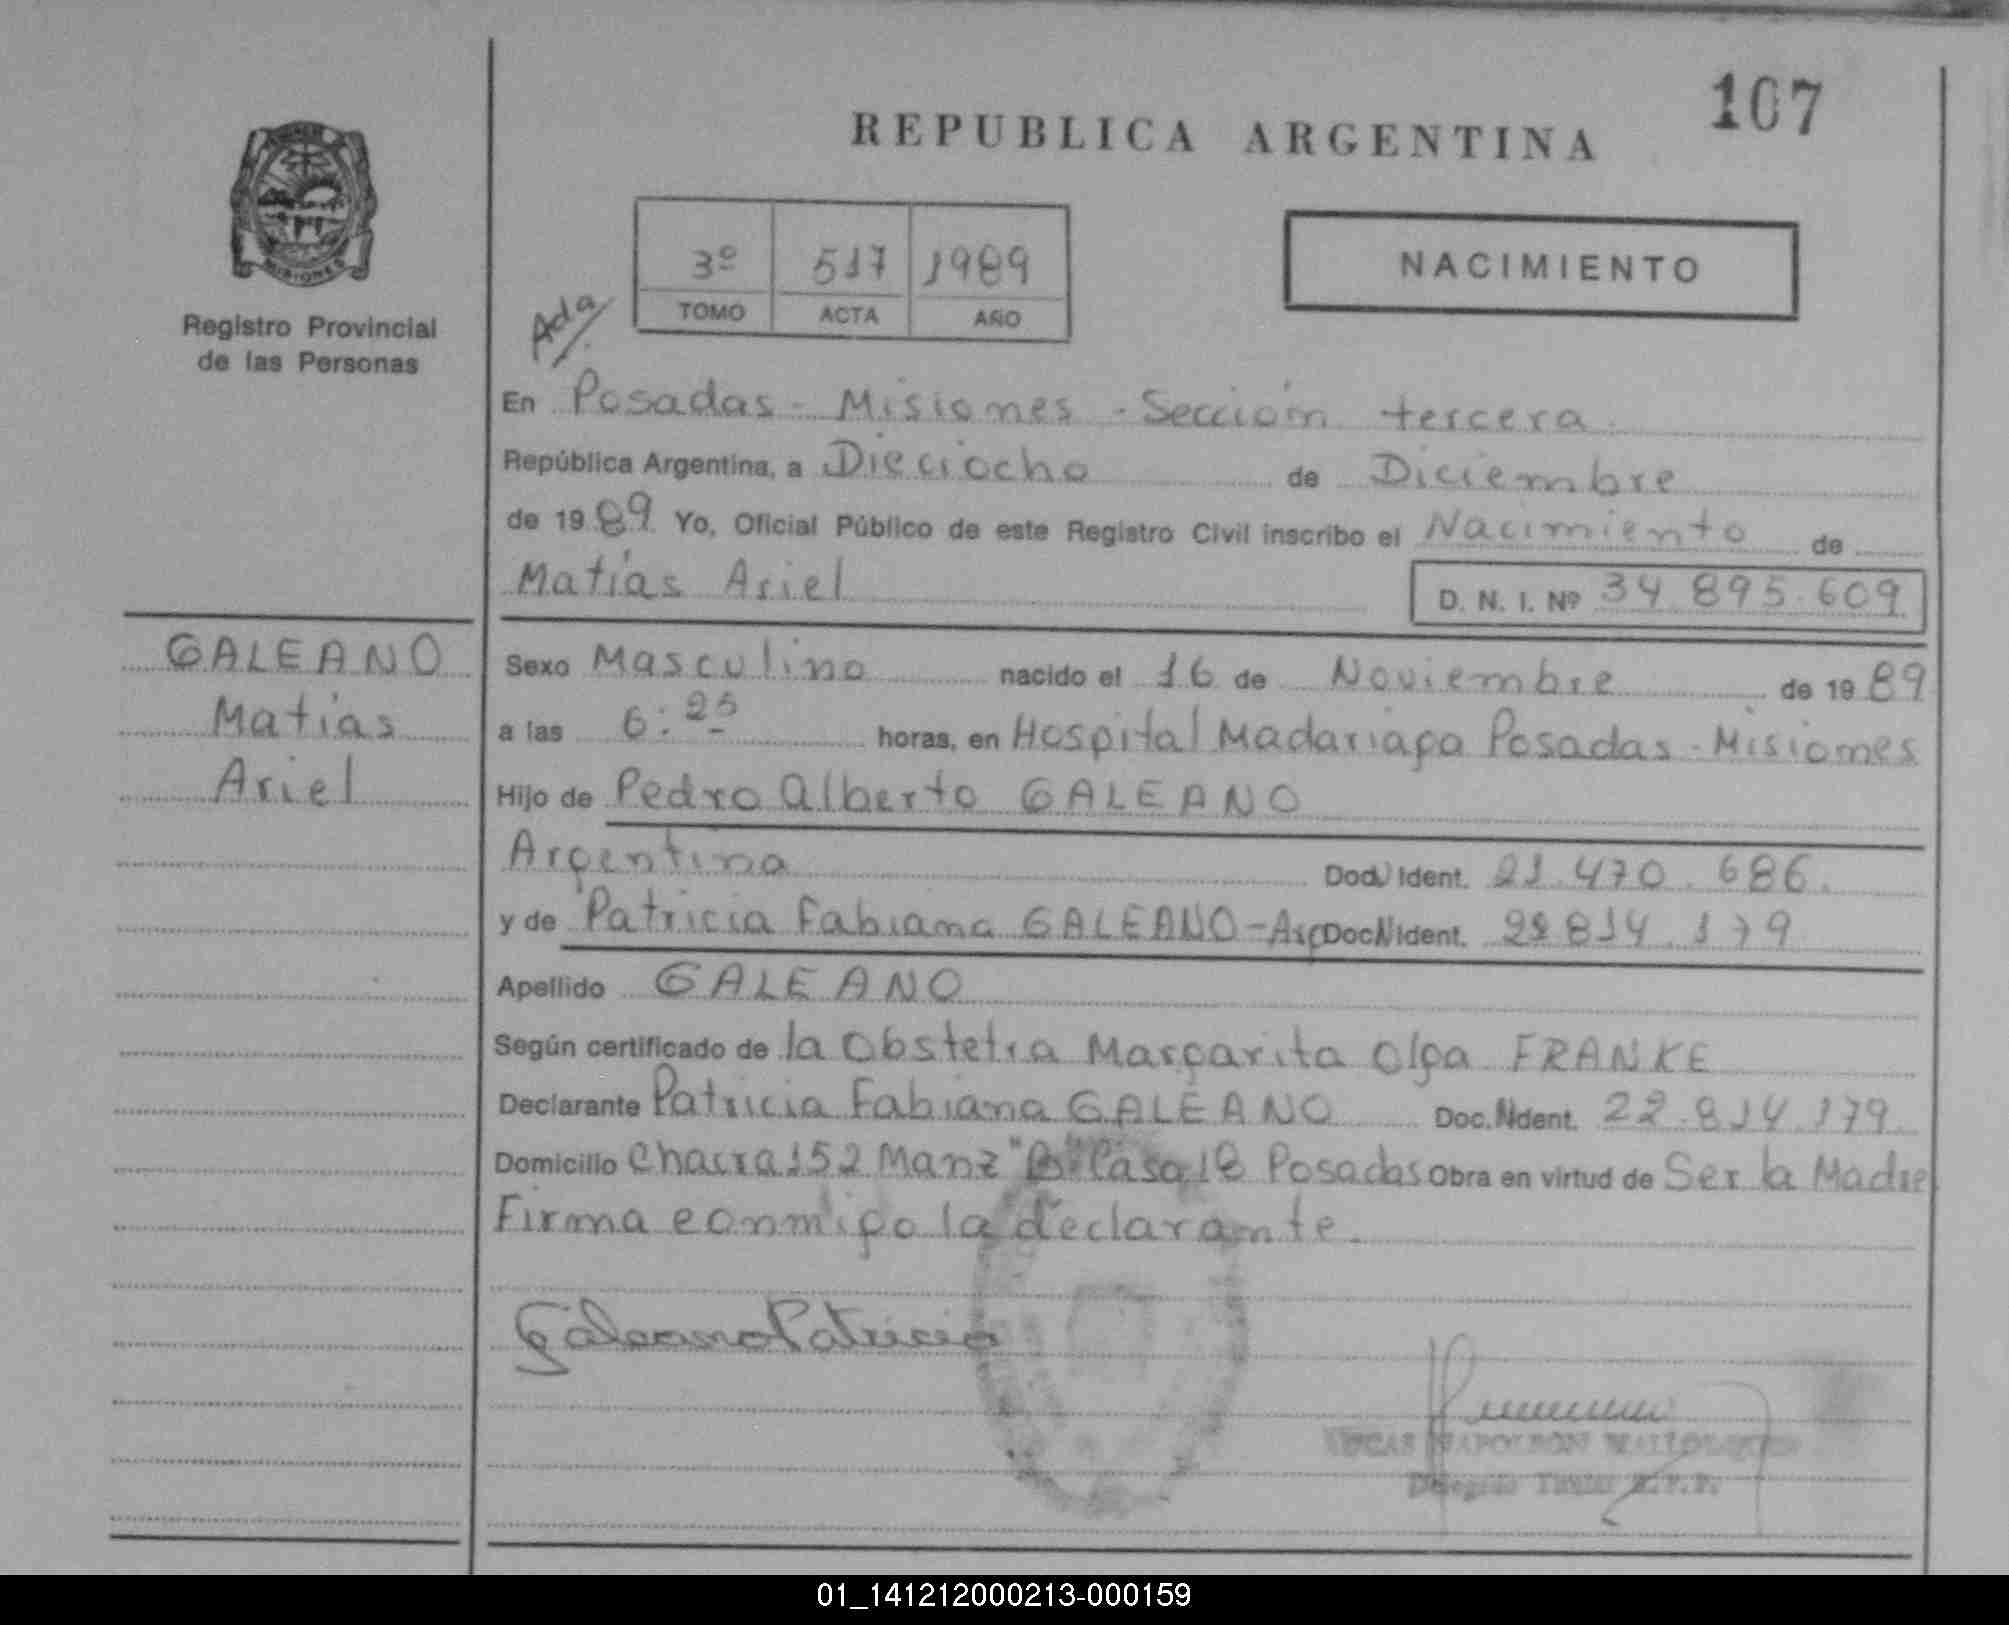 107
REPUBLICA ARGENTINA
MISIONES
Registro Provincial
de las Personas
3º 517 1989
TOMO ACTA AÑO
NACIMIENTO
En Posadas - Misiones - Sección tercera
República Argentina, a Dieciocho de Diciembre
de 1989 Yo, Oficial Público de este Registro Civil inscribo el Nacimiento de
Matías Ariel D. N. I. Nº 34.895.609
GALEANO
Matías
Ariel
Sexo Masculino nacido el 16 de Noviembre de 1989
a las 6:25 horas, en Hospital Madariaga Posadas - Misiones
Hijo de Pedro Alberto GALEANO
Argentina Doc. Ident. 21.470.686.
y de Patricia Fabiana GALEANO - Arg Doc. Ident. 22.814.179
Apellido GALEANO
Según certificado de la Obstetra Margarita Olga FRANKE
Declarante Patricia Fabiana GALEANO Doc. Ident. 22.814.179
Domicilio Chacra 152 Manz "B" Casa 18 Posadas Obra en virtud de Ser la Madre
Firma conmigo la declarante.
Galeano Patricia
NAPOLEON
01_141212000213-000159